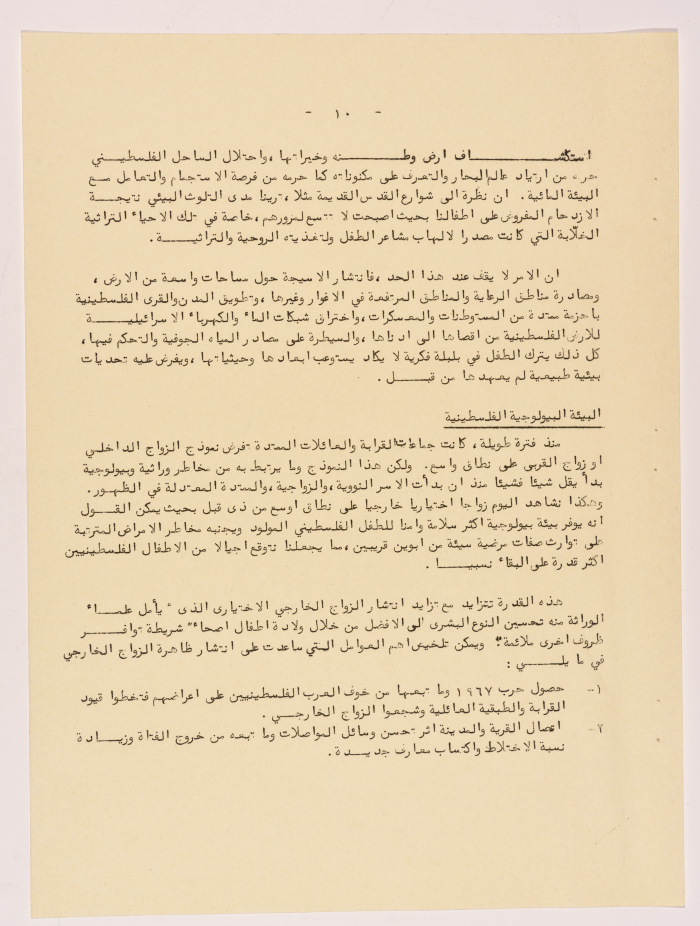 - ١٠ -
استكشاف ارض وطنه وخيراتها ،واحتلال الساحل الفلسطيني
حرمه من ارتياد عالم البحار والتعرف على مكنوناته كما حرمه من فرصة الاستجمام والتعامل مع
البيئة المائية. ان نظرة الى شوارع القدس القديمة مثلا ،ترينا مدى التلوث البيئي نتيجة
الازدحام المفروض على اطفالنا بحيث اصبحت لا تتسع لمرورهم ،خاصة في تلك الاحياء التراثية
الخلّابة التي كانت مصدرا لالهاب مشاعر الطفل ولتغذيته الروحية والتراثية.
ان الامر لا يقف عند هذا الحد ،فانتشار الاسيجة حول مساحات واسعة من الارض ،
ومصادرة مناطق الرعاية والمناطق المرتفعة في الاغوار وغيرها ،وتطويق المدن والقرى الفلسطينية
باحزمة ممتدة من المستوطنات والمعسكرات ،واختراق شبكات الماء والكهرباء الاسرائيلية
للارض الفلسطينية من اقصاها الى ادناها ،والسيطرة على مصادر المياه الجوفية والتحكم فيها،
كل ذلك يترك الطفل في بلبلة فكرية لا يكاد يستوعب ابعادها وحيثياتها ،ويفرض عليه تحديات
بيئية طبيعية لم يعهدها من قبل .
البيئة البيولوجية الفلسطينية
منذ فترة طويلة، كانت جماعات القرابة والعائلات الممتدة تفرض نموذج الزواج الداخلي
او زواج القربى على نطاق واسع. ولكن هذا النموذج وما يرتبط به من مخاطر وراثية وبيولوجية
بدأ يقل شيئا فشيئا منذ ان بدأت الاسر النووية ،والزواجية ،والممتدة المعتدلة في الظهور.
وهكذا نشاهد اليوم زواجا اختياريا خارجيا على نطاق اوسع من ذي قبل بحيث يمكن القول
انه يوفر بيئة بيولوجية اكثر سلامة وامنا للطفل الفلسطيني المولود ويجنبه مخاطر الامراض المترتبة
على توارث صفات مرضية سيئة من ابوين قريبين ،مما يجعلنا نتوقع اجيالا من الاطفال الفلسطينيين
اكثر قدرة على البقاء نسبيا .
هذه القدرة تتزايد مع تزايد انتشار الزواج الخارجي الاختياري الذي "يأمل علماء
الوراثة منه تحسين النوع البشرى الى الافضل من خلال ولادة اطفال اصحاء" شريطة توافر
ظروف اخرى ملائمة. ويمكن تلخيص اهم العوامل التي ساعدت على انتشار ظاهرة الزواج الخارجي
في ما يلي :
١- حصول حرب ١٩٦٧ وما تبعها من خوف العرب الفلسطينيين على اعراضهم فتخطوا قيود
القرابة والطبقية العائلية وشجعوا الزواج الخارجي .
٢- اتصال القرية والمدينة اثر تحسن وسائل المواصلات وما تبعه من خروج الفتاة وزيادة
نسبة الاختلاط واكتساب معارف جديدة.